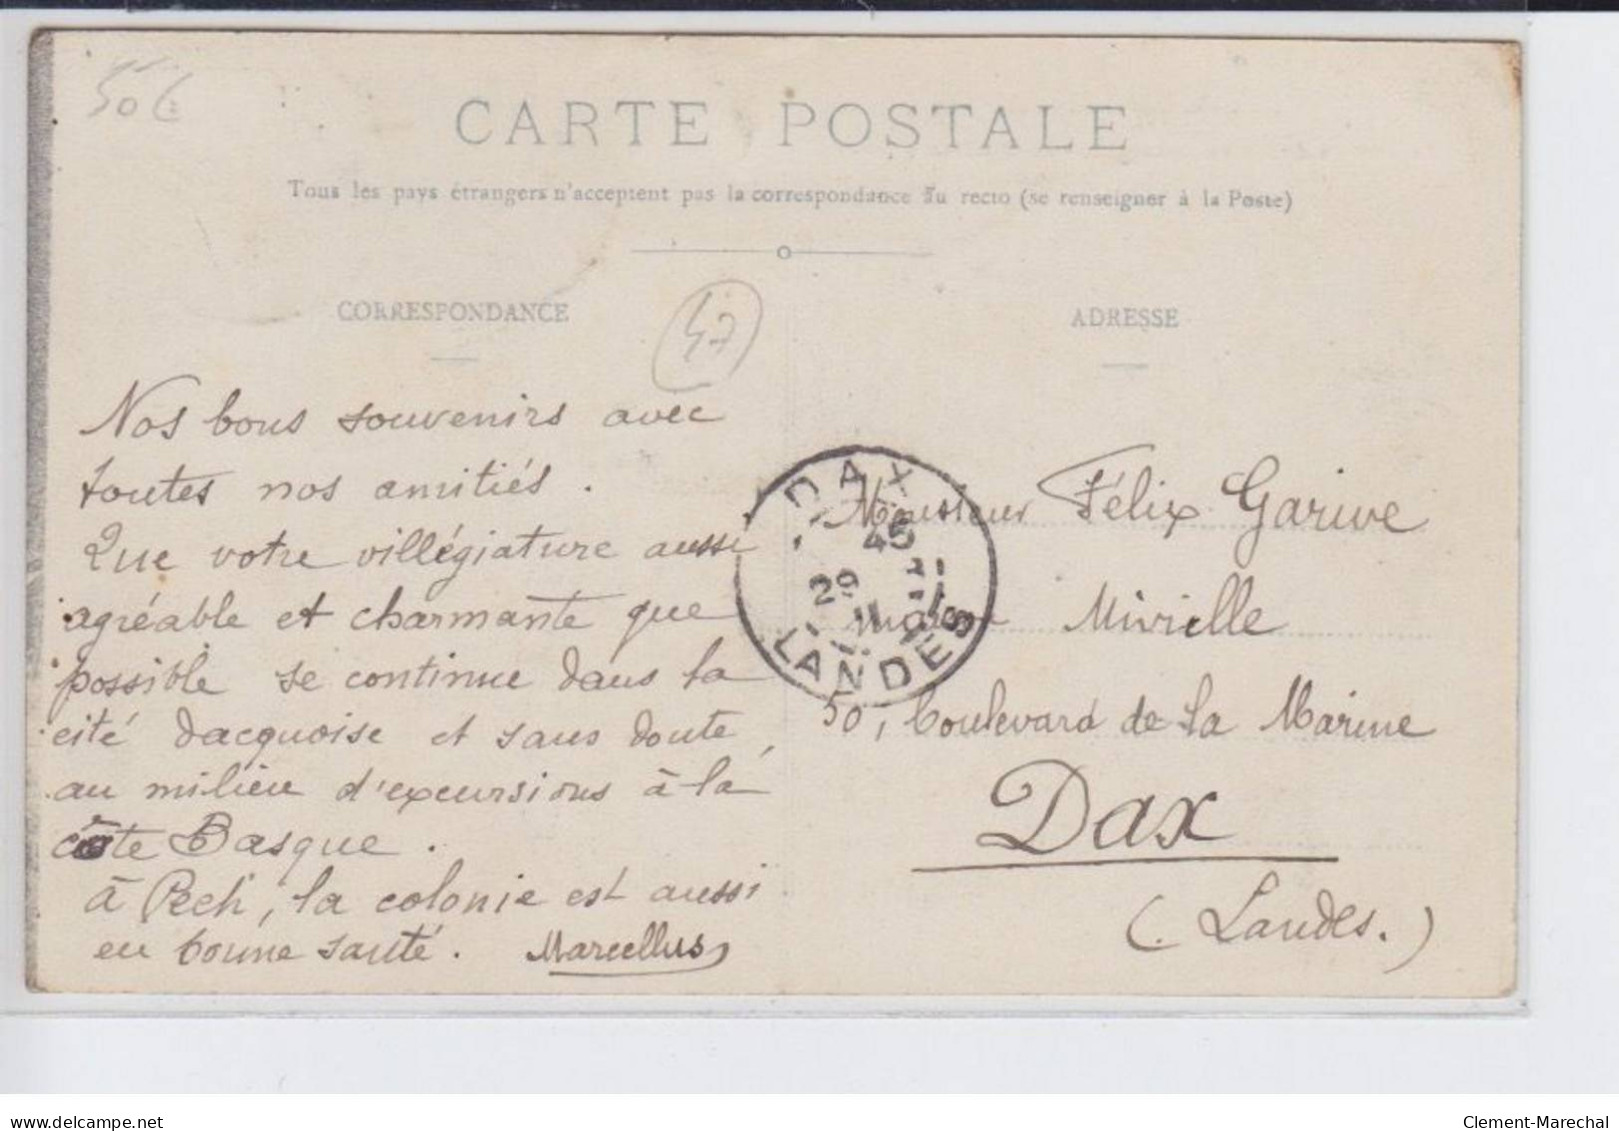 50 c
CARTE POSTALE
Tous les pays étrangers n'acceptent pas la correspondance au recto (se renseigner à la Poste)
CORRESPONDANCE
47
Nos bons souvenirs avec
toutes nos amitiés.
Que votre villégiature aussi
agréable et charmante que
possible se continue dans la
cité dacquoise et sans doute,
au milieu d'excursions à la
côte Basque.
à Pech, la colonie est aussi
en bonne santé. Marcellus
ADRESSE
DAX
45
29
11
LANDES
Monsieur Félix Garive
maison Mirielle
50, boulevard de la Marine
Dax
(Landes.)
delcampe.net
Clement-Marechal